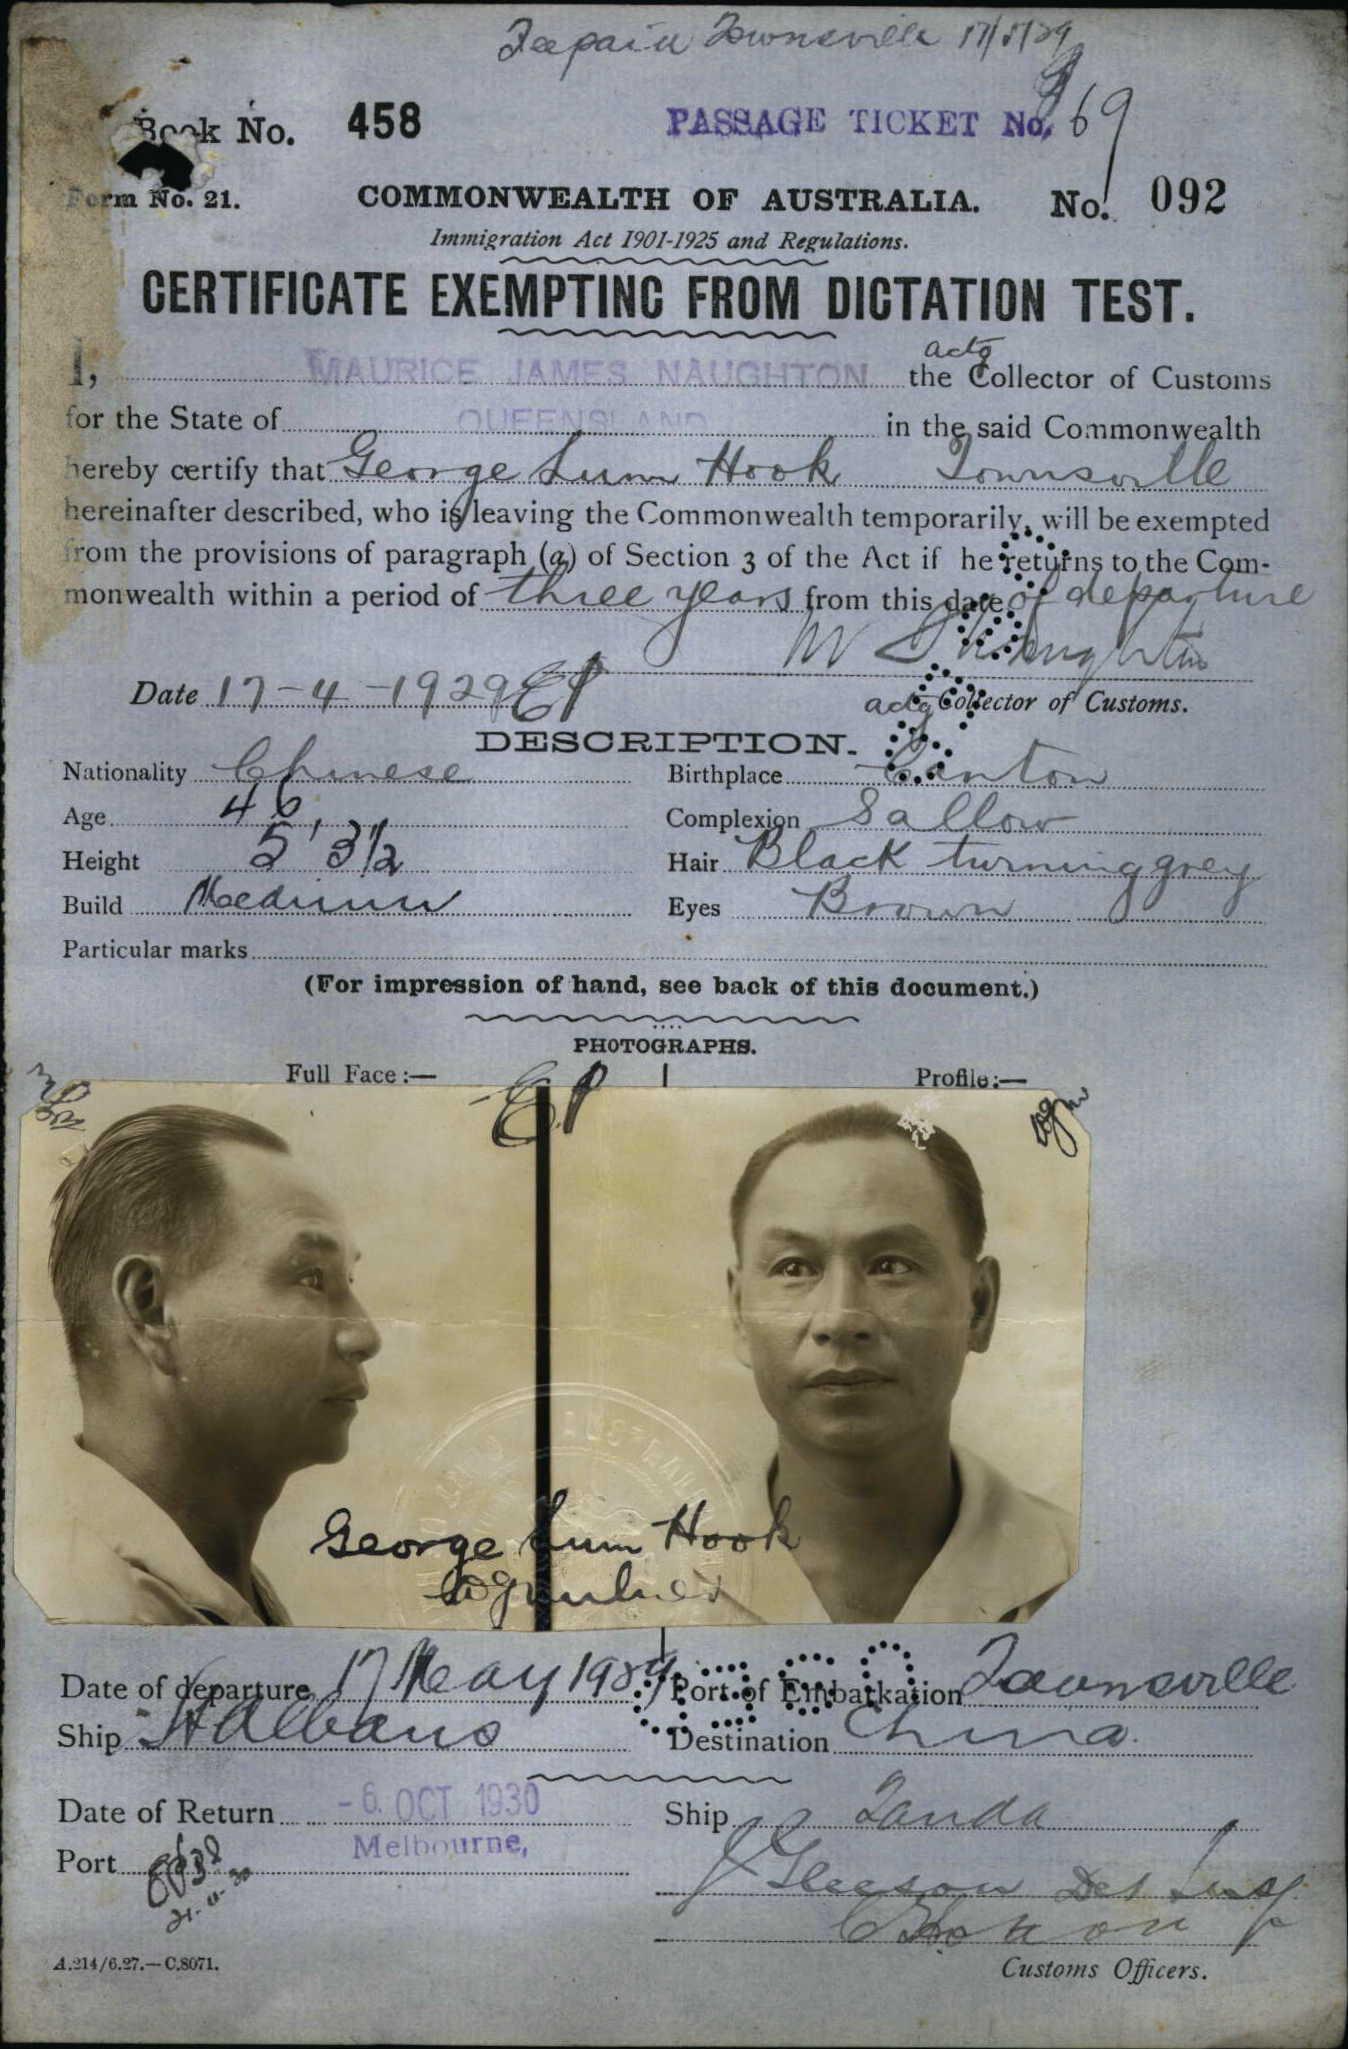 Townsville 17/5/29
Book No. 458
PASSAGE TICKET No. 69
Form No. 21.
COMMONWEALTH OF AUSTRALIA. No. 092
Immigration Act 1901-1925 and Regulations.
CERTIFICATE EXEMPTING FROM DICTATION TEST.
I, MAURICE JAMES NAUGHTON the actg Collector of Customs
for the State of QUEENSLAND in the said Commonwealth
hereby certify that George Lum Hook Townsville
hereinafter described, who is leaving the Commonwealth temporarily, will be exempted
from the provisions of paragraph (a) of Section 3 of the Act if he returns to the Com-
monwealth within a period of three years from this date of departure
M J Naughton
Date 17-4-1929
actg Collector of Customs.
DESCRIPTION.
Nationality Chinese Birthplace Canton
Age 46 Complexion Sallow
Height 5' 3½ Hair Black turning grey
Build Medium Eyes Brown
Particular marks
(For impression of hand, see back of this document.)
PHOTOGRAPHS.
Full Face:— Profile:—
George Lum Hook
Date of departure 17 May 1929 Port of Embarkation Townsville
Ship St Albans Destination China.
Date of Return -6. OCT 1930 Ship Tanda
Port Melbourne,
J Gleeson Det Insp
21-11-30
A.214/6.27.—C.8071. Customs Officers.